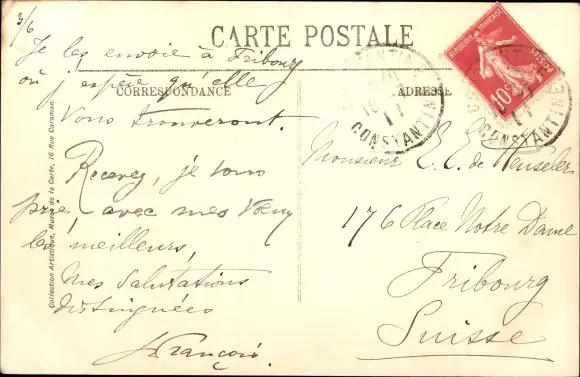 3/6
CARTE POSTALE
Je les envoie à Fribourg
où j'espère qu'elles
Vous trouveront.
Recevez, je vous
prie, avec mes Vœux
les meilleurs,
Mes Salutations
distinguées
J. François.
CORRESPONDANCE
ADRESSE
Monsieur E. E. de Weuseler
176 Place Notre Dame
Fribourg
Suisse
REPUBLIQUE FRANÇAISE
POSTES
10c
CONSTANTIN
CONSTANTINE
Collection Artistique, Musée de la Carte, 16 Rue Caraman.